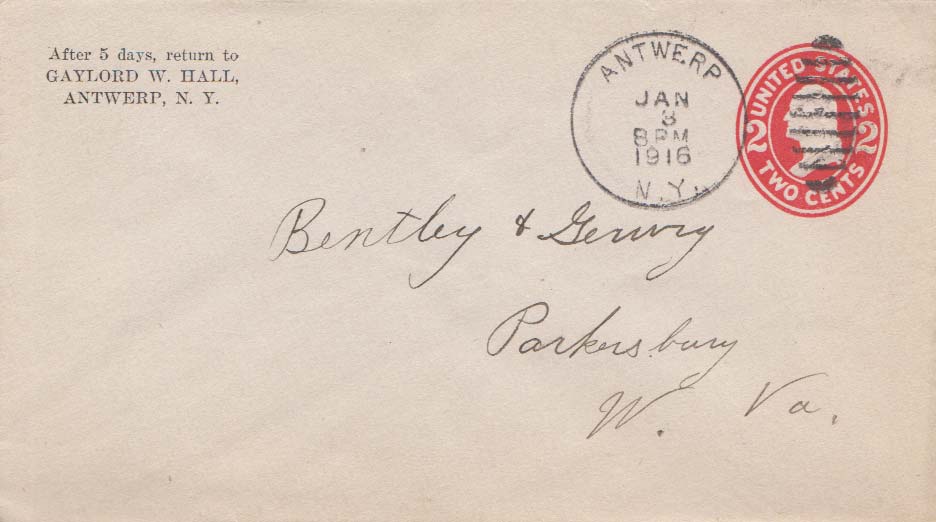 After 5 days, return to
GAYLORD W. HALL,
ANTWERP, N. Y.
ANTWERP
JAN
3
8 PM
1916
N.Y.
UNITED STATES
2 2
TWO CENTS
Bentley &
Parkersbury
W. Va.